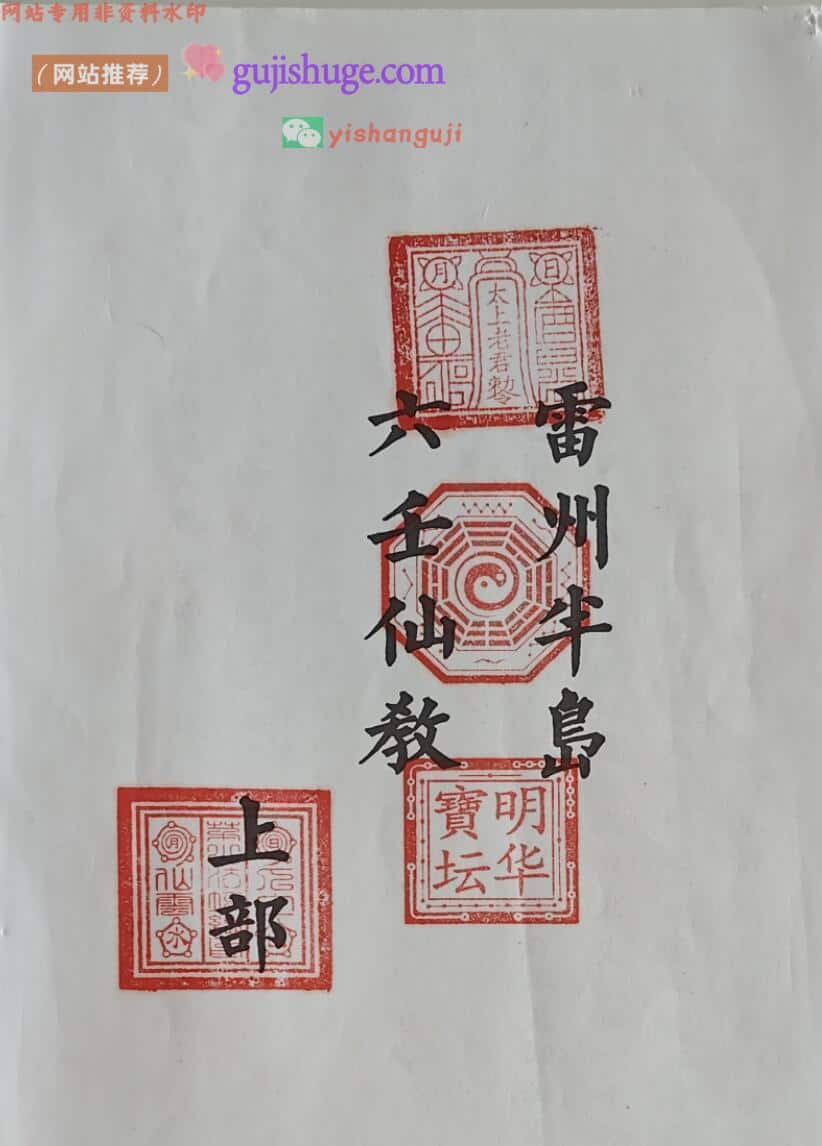 网站专用非资料水印
（网站推荐） gujishuge.com
yishanguji
日 月
太上老君勅令
雷州半島
六壬仙教
明华
寶坛
上部
月
仙雲
水